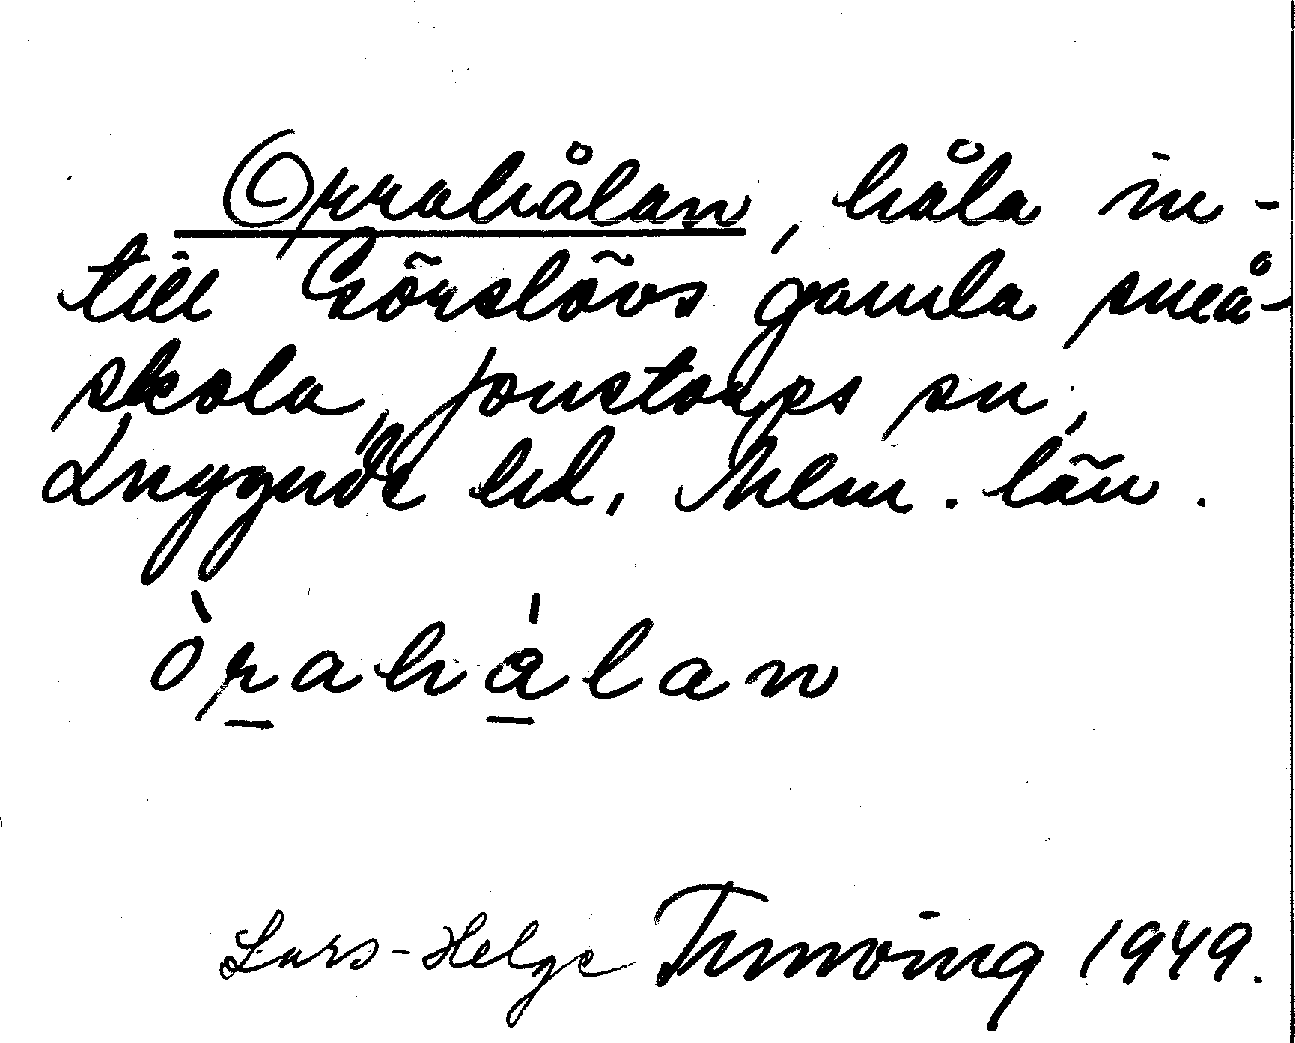 Orrahålan, håla in-
till Görslövs gamla små-
skola, Jonstorps sn,
Luggude hd, Mlm. län.
òrahǻlan
Lars-Helge 1949.